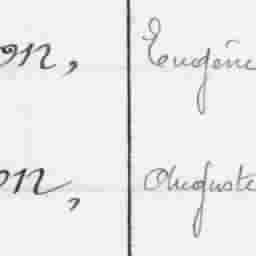 on, Eugénie
on, Auguste